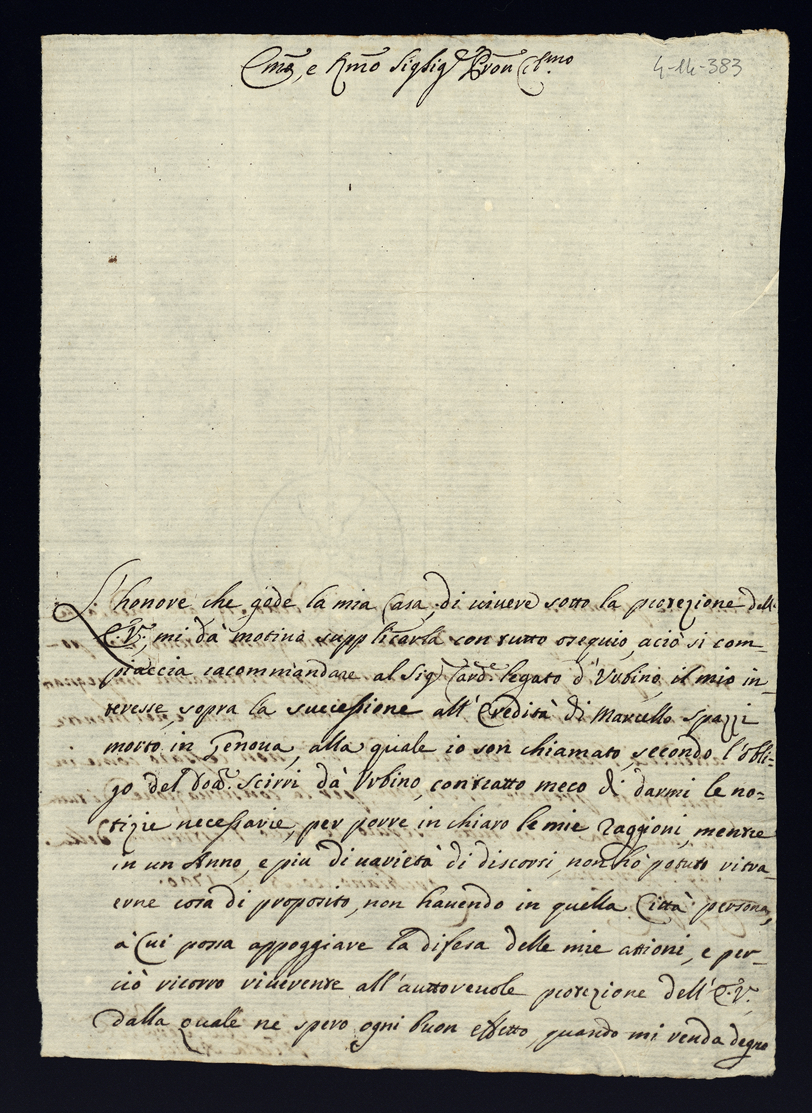 Em̃o, e Rm̃o Sig.r Sig.r Pron Col.mo
4-14-383
L'honore che gode la mia Casa, di uiuere sotto la protezione dell'
E.V., mi dà motiuo supplicarla con tutto ossequio, aciò si com-
piaccia racommandare al Sig.r Card.e legato d'Vrbino, il mio in-
teresse, sopra la successione all'Eredità di Marcello Spazzi
morto in Genoua, alla quale io son chiamato, secondo l'obli-
go del Dott. Scirri dà Vrbino, contratto meco di darmi le no-
tizie necessarie, per porre in chiaro le mie raggioni, mentre
in un Anno, e più di uarietà di discorsi, non hò potuto ritra-
erne cosa di proposito, non hauendo in quella Città persona,
à Cui possa appoggiare la difesa delle mie attioni, e per-
ciò ricorro riuerente all'auttoreuole protezione dell'E.V.
dalla quale ne spero ogni buon effetto, quando mi renda degno